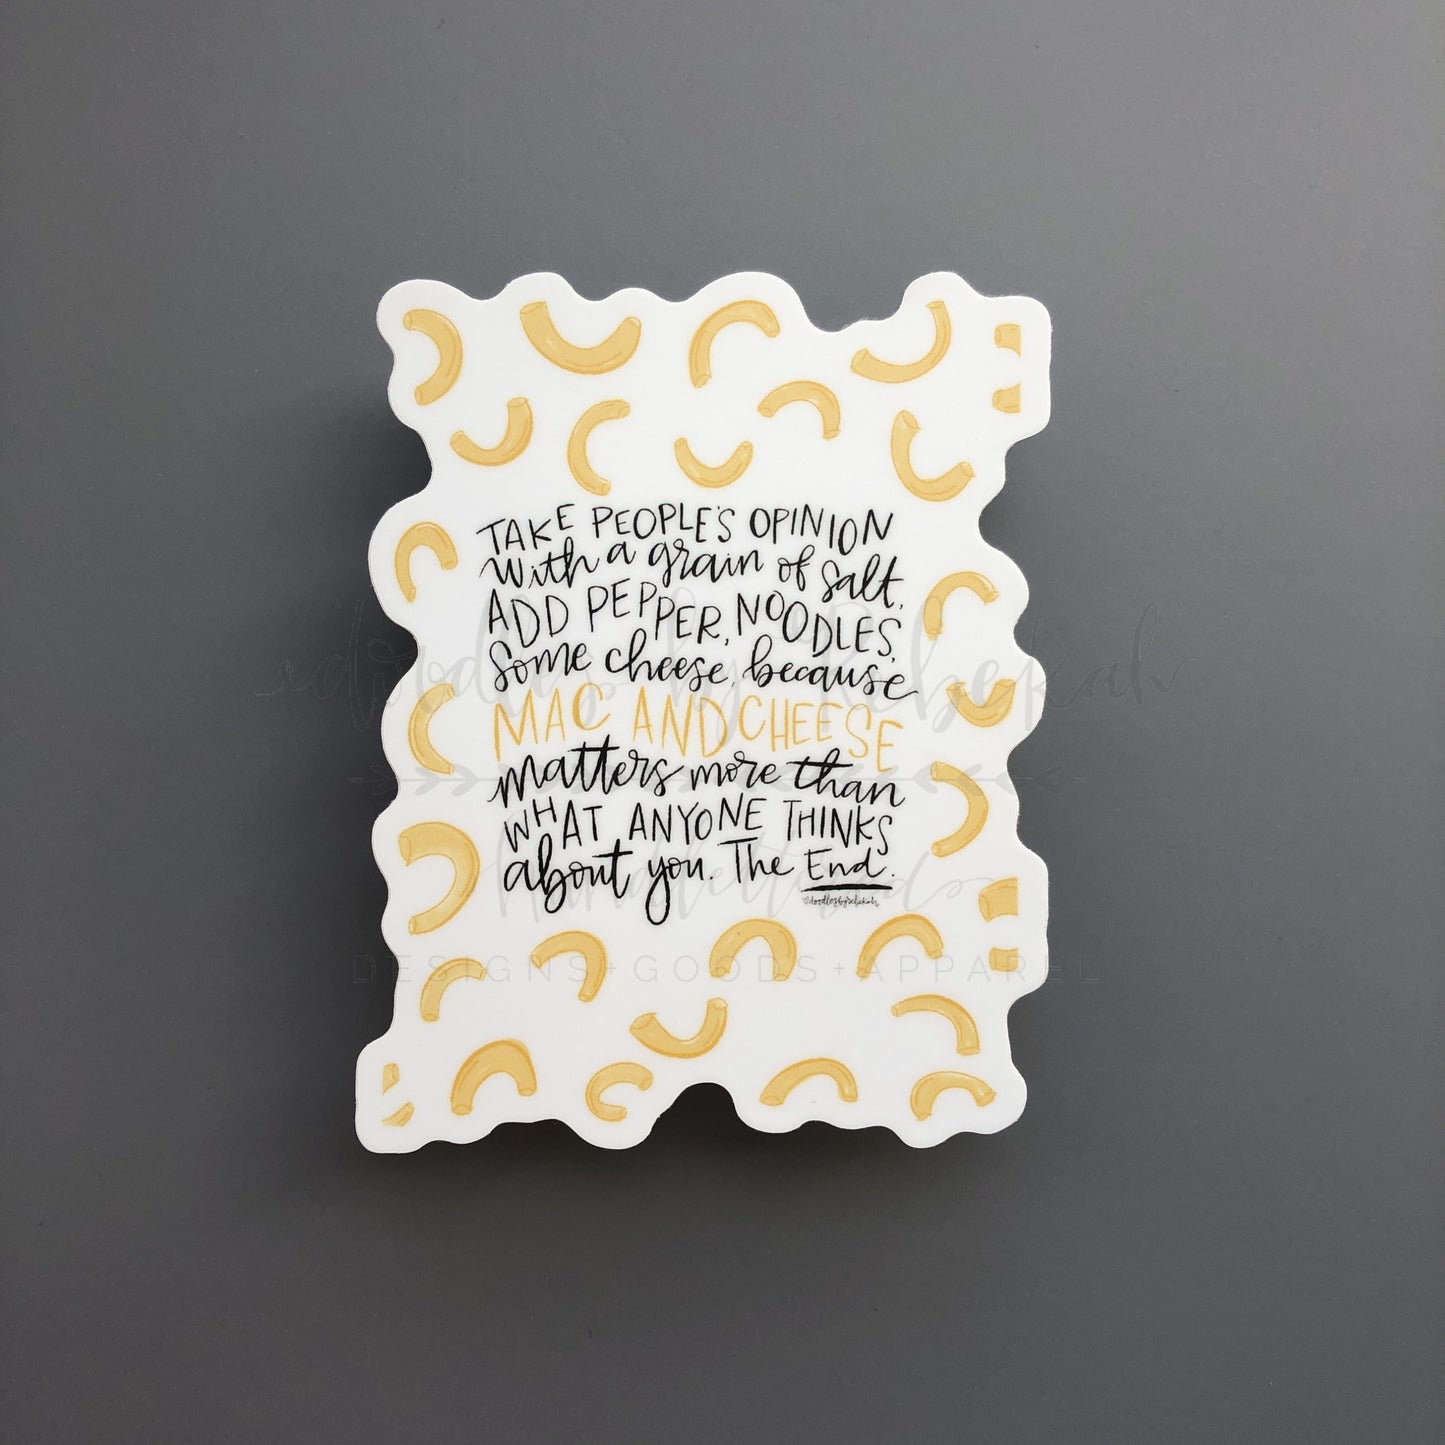 TAKE PEOPLE'S OPINION
with a grain of salt,
ADD PEPPER, NOODLES,
some cheese, because
MAC AND CHEESE
matters more than
WHAT ANYONE THINKS
about you. The End.
@doodlesbyrebekah
doodles by Rebekah
handlettered
DESIGNS+GOODS+APPAREL